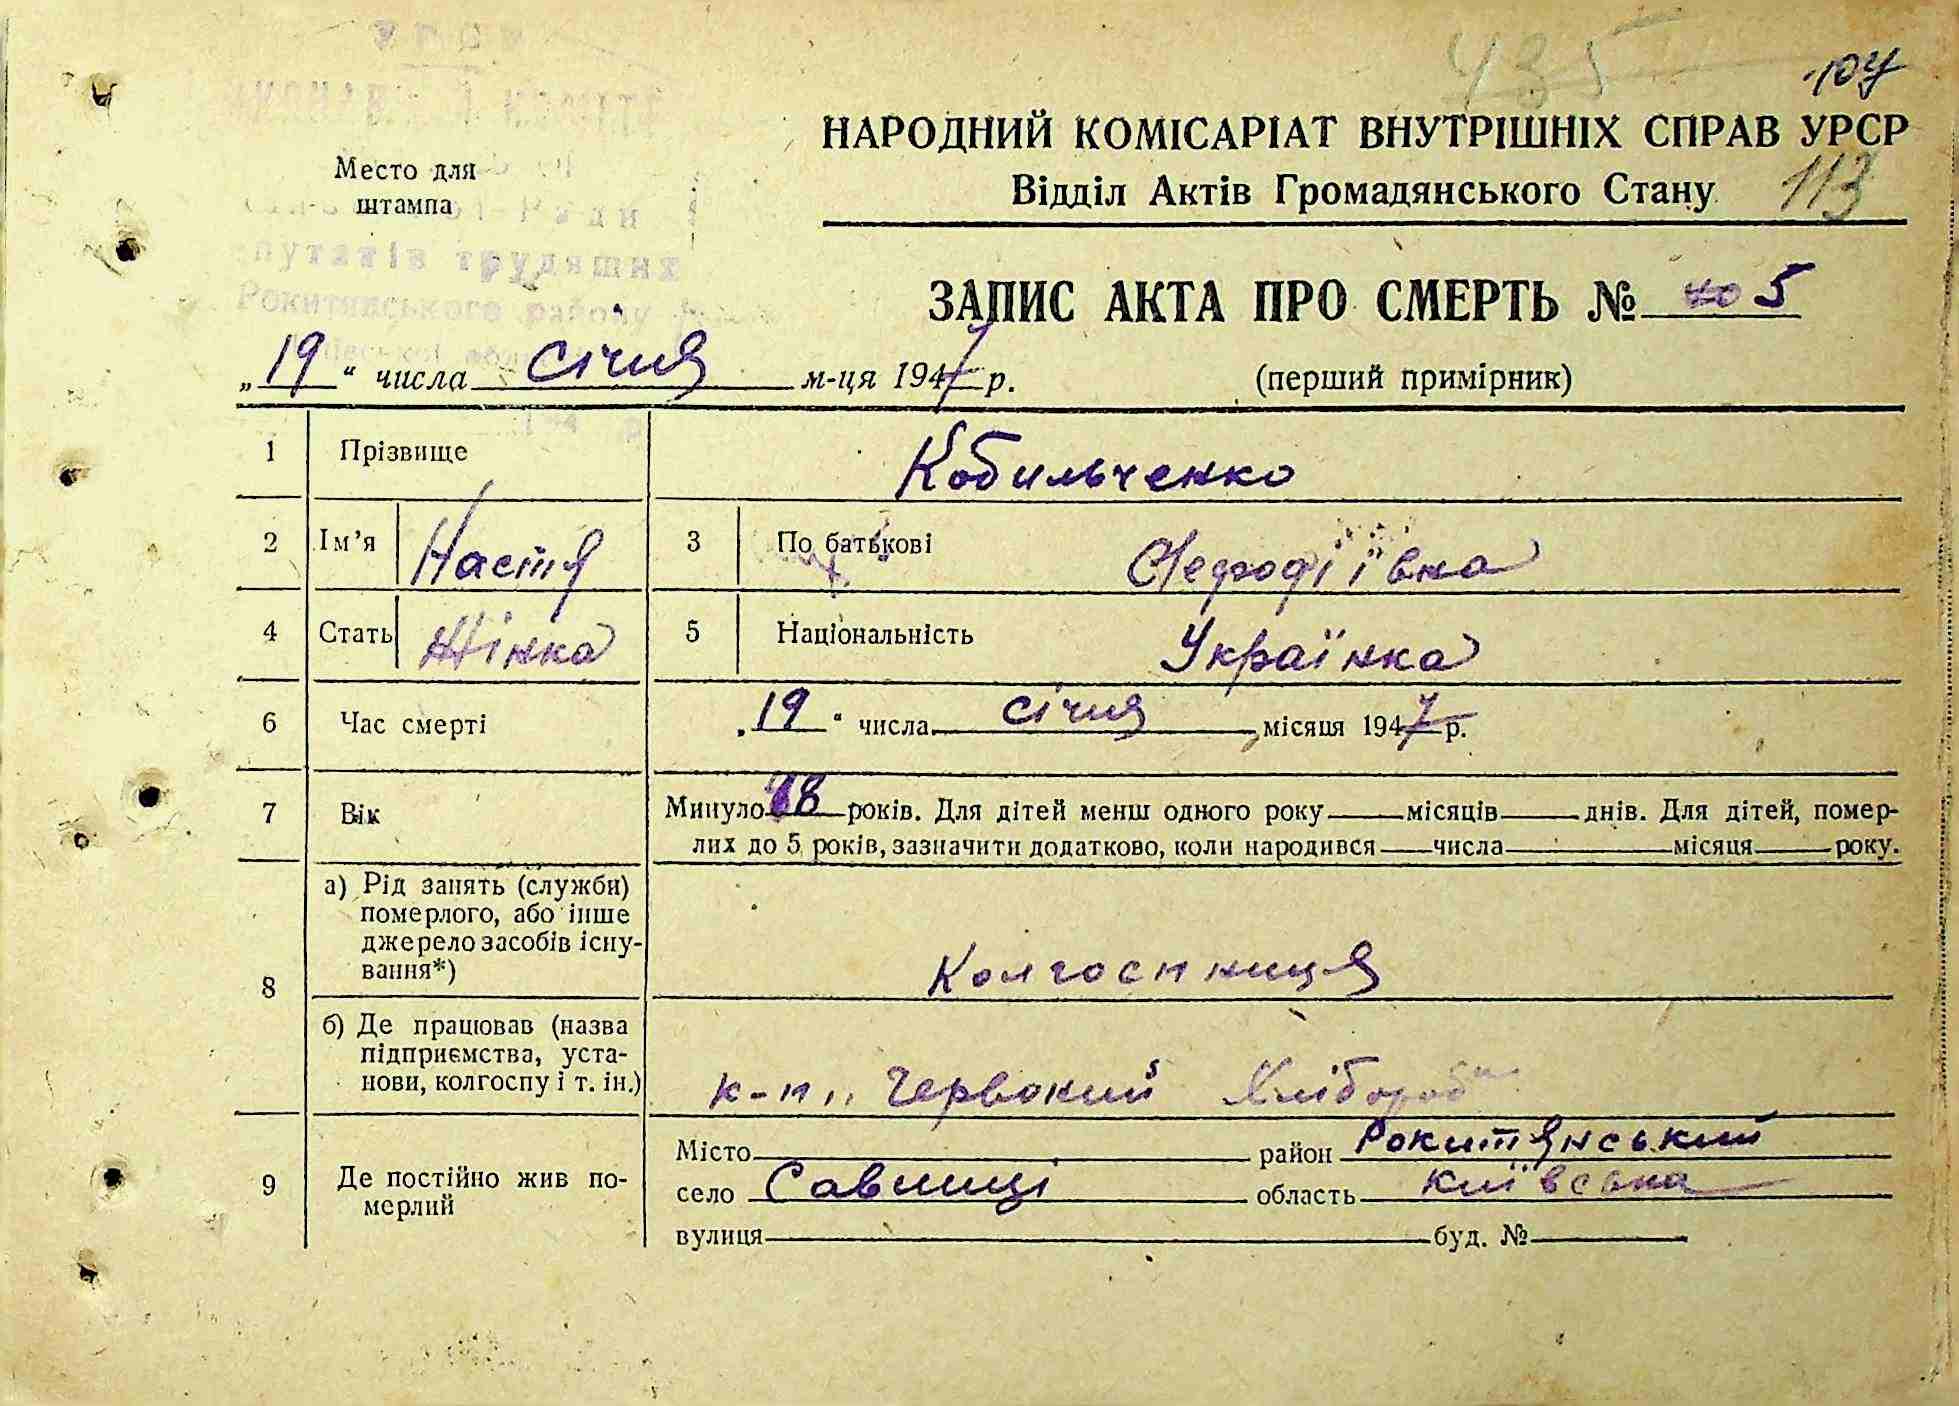 435
104
НАРОДНИЙ КОМІСАРІАТ ВНУТРІШНІХ СПРАВ УРСР
Відділ Актів Громадянського Стану
113
Место для
штампа
Ради
путатів трудящих
Рокитянського району
ЗАПИС АКТА ПРО СМЕРТЬ № 5
„19“ числа січня м-ця 1947 р.
(перший примірник)
1 Прізвище Кобильченко
2 Ім’я Настя 3 По батькові Мефодіївна
4 Стать Жінка 5 Національність Українка
6 Час смерті „19“ числа січня місяця 1947 р.
7 Вік Минуло 78 років. Для дітей менш одного року — місяців — днів. Для дітей, помер-
лих до 5 років, зазначити додатково, коли народився — числа — місяця — року.
8 а) Рід занять (служби)
померлого, або інше
джерело засобів існу-
вання*)
Колгоспниця
б) Де працював (назва
підприємства, уста-
нови, колгоспу і т. ін.)
к-п „Червоний Хлібороб“
9 Де постійно жив по-
мерлий
Місто район Рокитянський
село Савинці область Київська
вулиця буд. №